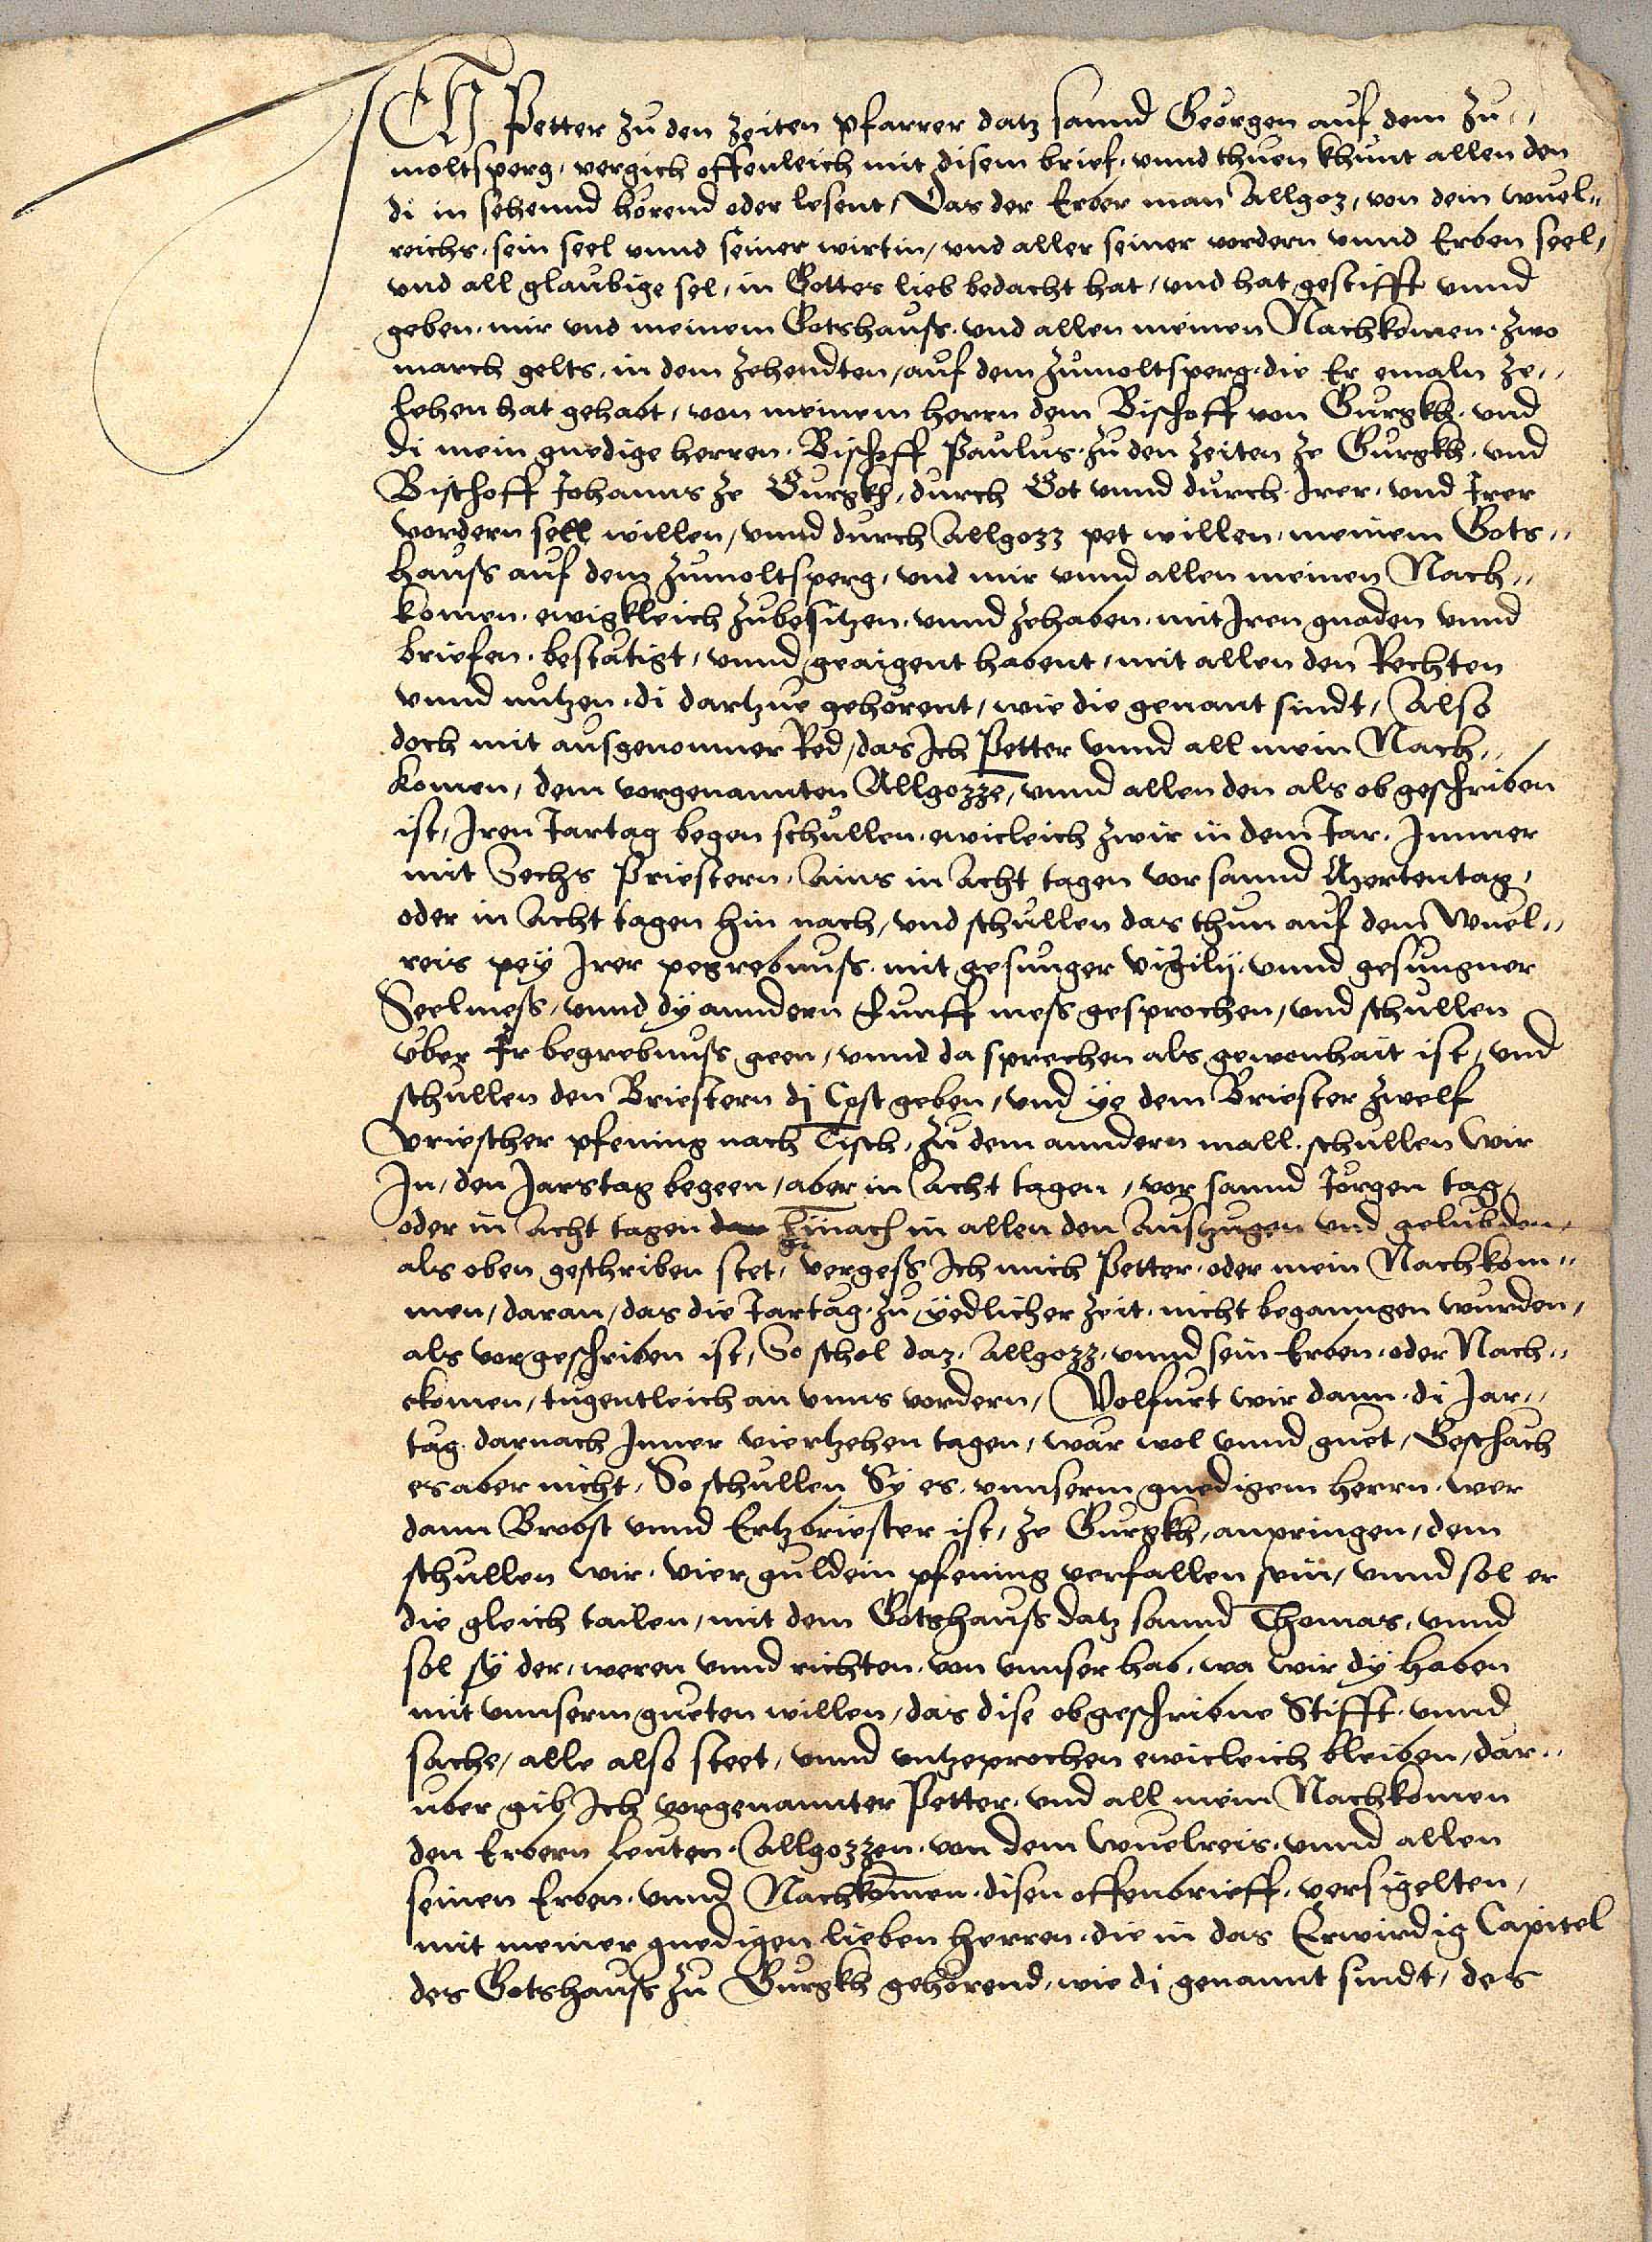 ICH Petter zu den zeiten Pfarrer datz sannd Geörgen auf dem Zu-
moltsperg, vergich offenleich mit disem brief, vnnd thuen khunt allen den
di in sehennd hörend oder lesent, Das der Erber man Allgoz, von dem wuel-
reichs, sein seel vnnd seiner wirtin, vnd aller seiner vordern vnnd Erben seel,
vnd all glaubige sel, in Gottes lieb bedacht hat, vnd hat gestifft vnnd
geben, mir vnd meinem Gotshauss, vnd allen meinen Nachkomen, zwo
march gelts, in dem zehendten, auf dem Zumoltsperg, die Er emaln ze-
lehen hat gehabt, von meinem herrn dem Bischoff von Gurgkh, vnd
di mein gnedige herren, Bischoff Paulus, zu den zeiten ze Gurgkh, vnd
Bischoff Johanns ze Gurgkh, durch Got vnnd durch Irer, vnd Irer
vordern sell willen, vnnd durch Allgozz pet willen, meinem Gots-
hauss auf dem Zumoltsperg, vnd mir vnnd allen meinen Nach-
komen, ewigkleich zubesitzen, vnnd zehaben, mit Iren gnaden vnnd
briefen, bestätigt, vnnd geaigent habent, mit allen den Rechten
vnnd nutzen, di dartzue gehörent, wie die genant sindt, Also
doch mit ausgenomner Red, das Ich Petter vnnd all mein Nach-
komen, dem vorgenannten Allgozze, vnnd allen den als obgeschriben
ist, Iren Jartag began schullen, ewicleich zwir in dem Jar, Immer
mit Sechs Priestern, Ains in Acht tagen vor sannd Mertentag,
oder in Acht tagen hin nach, vnd schullen das thun auf dem Wuel-
reis pey Irer pegrebnuss, mit gesunger vigilij, vnnd gesungner
Seelmess, vnnd dy anndern funff mess gesprochen, vnd schullen
vber Ir begrebnuss geen, vnnd da sprechen als gewonhait ist, vnd
schullen den Briestern di Cost geben, vnd ye dem Briester zwelf
vriescher pfening nach Tisch, zu dem anndern mall, schullen wir
In, den Jarstag begeen, aber in Acht tagen, vor sannd Jörgen tag,
oder in Acht tagen hinach in allen den Auszugen vnd gelubden,
als oben geschriben stet, vergess Ich mich Petter, oder mein Nachkom-
men, daran, das die Jartag, zu yedlicher zeit, nicht beganngen wurden,
als vorgeschriben ist, So schol daz, Allgozz, vnnd sein Erben, oder Nach-
ckomen, tugentleich an vnns vordern, Volfurt wir dann, di Jar-
tag darnach Inner viertzehen tagen, wär wol vnnd guet, Geschach
es aber nicht, So schullen Sy es, vnnserm gnedigem herrn, wer
dann Brobst vnnd Ertzbriester ist, ze Gurgkh, anpringen, dem
schullen wir, vier guldein pfening verfallen sein, vnnd sol er
die gleich tailen, mit dem Gotshauss datz sannd Thomas, vnnd
sol sy der, weren vnnd richten, von vnnser hab, wa wir dy haben
mit vnnserm gueten willen, das dise obgeschribne Stifft, vnnd
sache, alle also steet, vnnd vntzeprochen ewicleich bleiben, dar-
uber gib Ich vorgenannter Petter, vnd all mein Nachkomen
den Erbern leuten, Allgozzen, von dem wuelreis, vnnd allen
seinen Erben, vnnd Nachkomen, disen offenbrieff, versigelten,
mit meiner gnedigen lieben herren, die in das Erwirdig Capitel
des Gotshauss zu Gurgkh gehörend, wie di genannt sindt, des